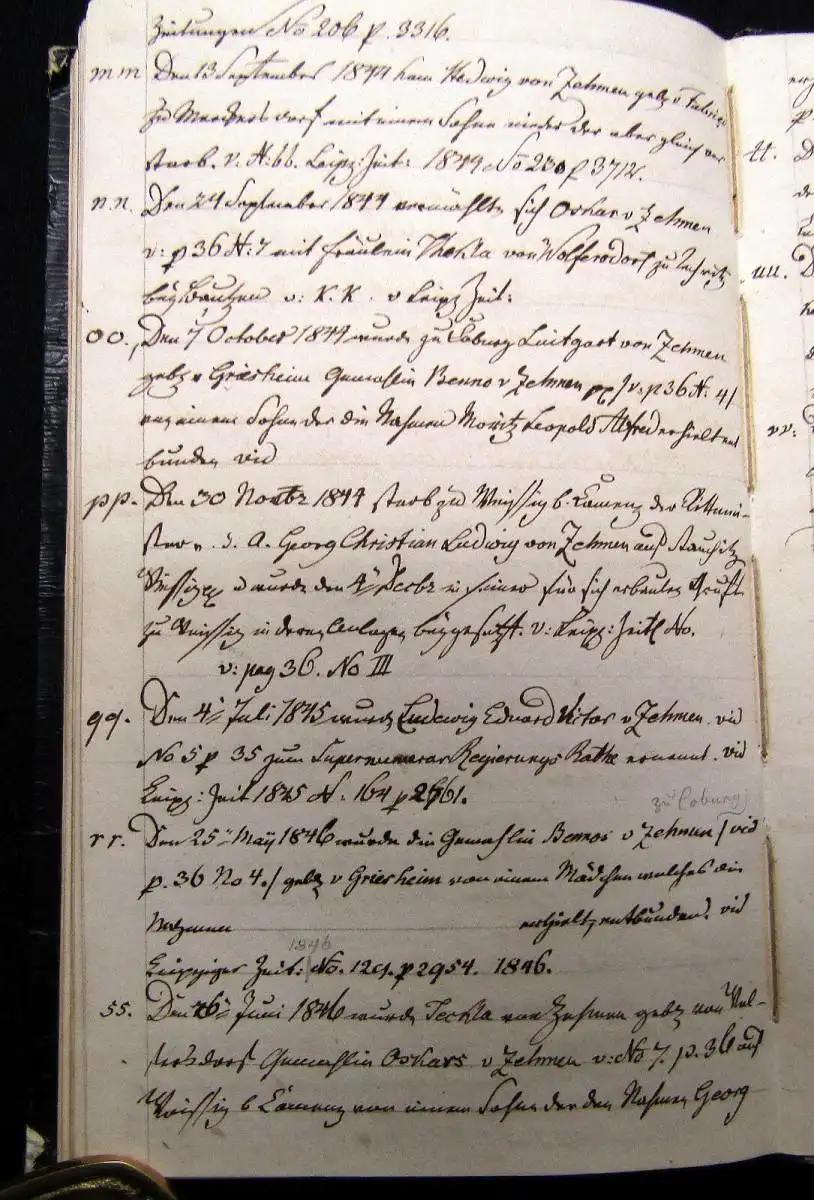 Zeitungen No 206 p. 3316.
mm Den 13 September 1844 kam Hedwig von Zehmen geb: v Fabrice
zu Meckersdorf mit einem Sohne nieder der aber gleich
starb. v. A: 66. Leipz: Zeit: 1844 No 230 p 3712.
n.n. Den 24 September 1844 vermählte sich Oskar v Zehmen
v: p 36 N: 7 mit Fräulein Thekla von Wolfersdorf zu
bey Bautzen v: K. K. v Leipz Zeit:
oo. Den 7 October 1844 wurde zu Coburg Luitgart von Zehmen
geb: v Griesheim Gemahlin Benno v Zehmen pp / v: p 36 N: 4/
von einem Sohne der die Nahmen Moritz Leopold Alfred erhielt ent
bunden vid
pp. Den 30 Novbr 1844 starb zu Weissig b. Camenz der Rittmei-
ster v. d. A. Georg Christian Ludwig von Zehmen auf Stauchitz
Weissig pp u wurde den 4' Decbr in seiner für sich erbauten Gruft
zu Weissig in deren Anlagen beygesetzt. v: Leipz: Zeit No.
v: pag 36. No III
qq. Den 4' Juli 1845 wurde Ludewig Eduard Victor v Zehmen. vid
No 5 p 35 zum Supernumerar Regierungs Rathe ernannt. vid
Leipz: Zeit 1845 N: 164 p 2661.
zu Coburg
rr. Den 25' May 1846 wurde die Gemahlin Bennos v Zehmen / vid
p. 36 No 4./ geb: v Griesheim von einem Mädchen welches die
Nahmen erhielt, entbunden. vid
1846
Leipziger Zeit: No. 129. p 2954. 1846.
ss. Den 6' Juni 1846 wurde Teckla von Zehmen geb: von Wol-
fersdorf Gemahlin Oskars v Zehmen v: No 7. p. 36 auf
Weissig b Camenz von einem Sohne der den Nahmen Georg